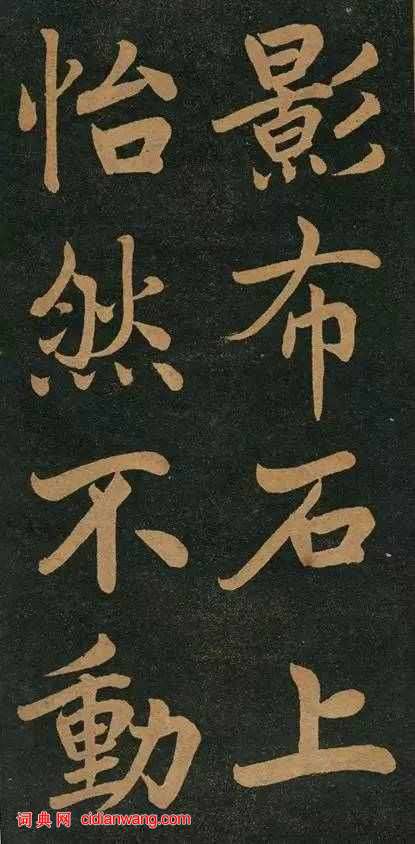 影布石上
怡然不動
词典网 cidianwang.com